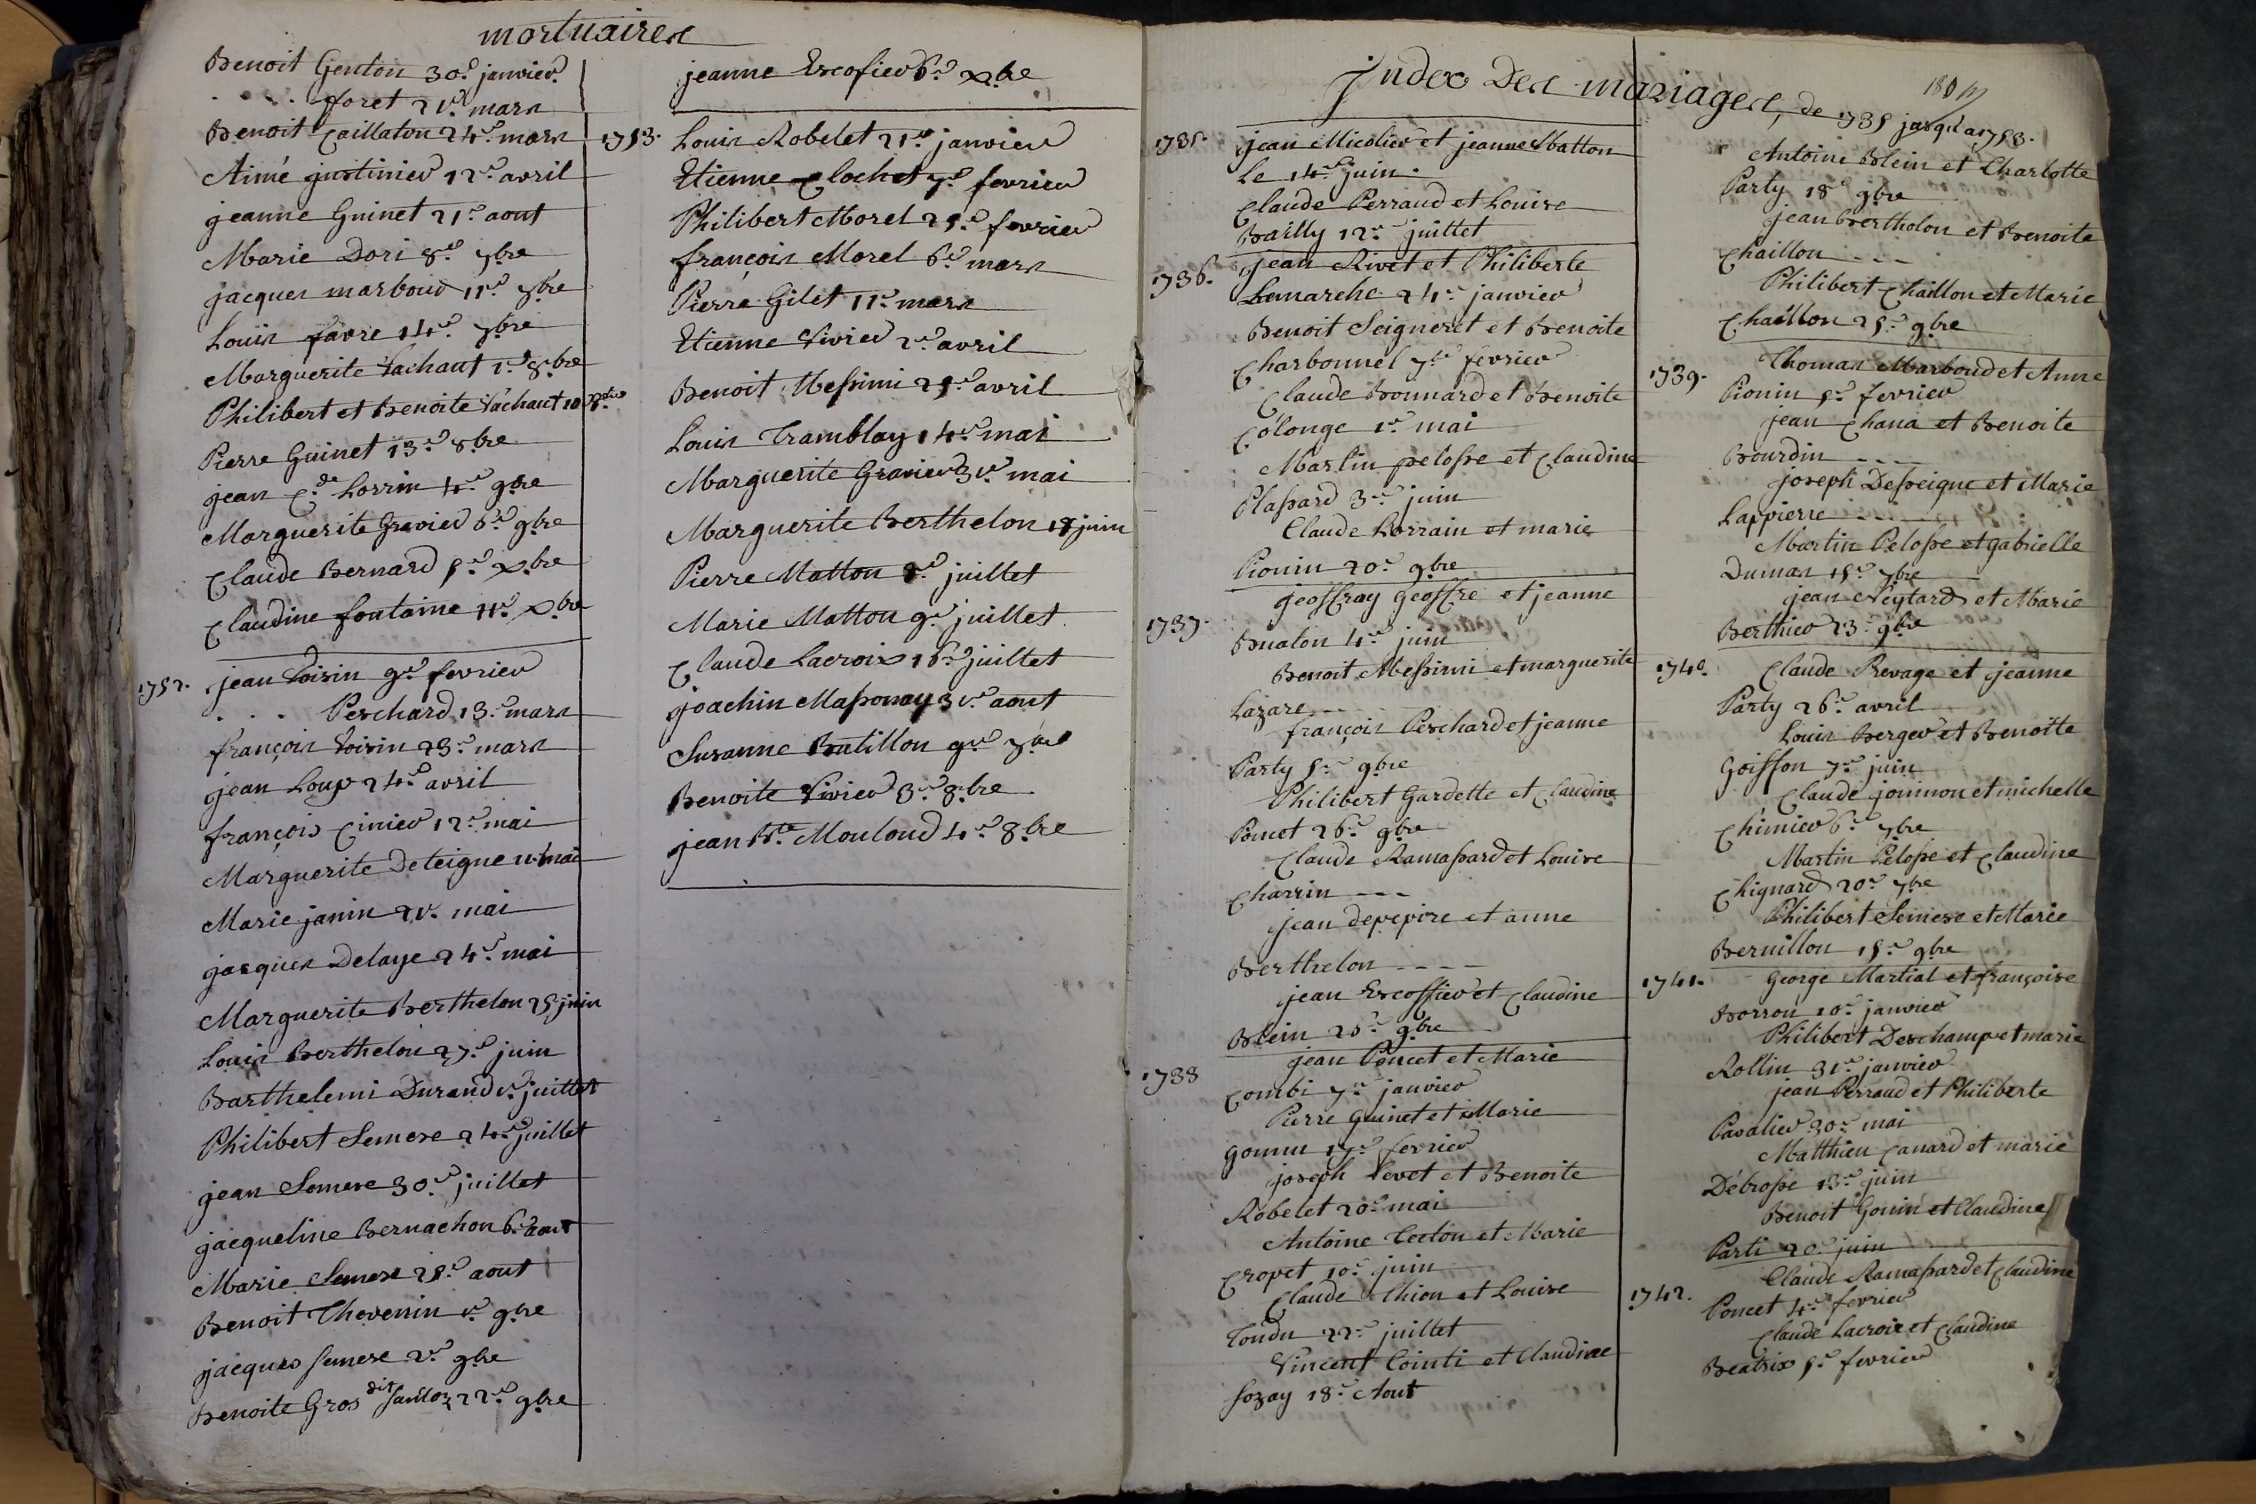 mortuaires
Benoit Genton 30.e janvier
. . . . foret 21.e mars
Benoit Caillaton 24.e mars
Aimé justinier 12.e avril
jeanne Guinet 21.e aout
Marie Dori 8.e 7bre
jacques marboud 11.e 7bre
Louis favre 14.e 7bre
Marguerite Vachaut 1.er 8bre
Philibert et Benoite Vachaut 10
Pierre Guinet 13.e 8bre
jean C.de Lorrin 4.e 9bre
Marguerite Gravier 6.e 9bre
Claude Bernard 5.e Xbre
Claudine fontaine 11.e Xbre
1752. jean Voisin 9.e fevrier
. . . Perchard 13.e mars
françois Voisin 23.e mars
jean Loup 24.e avril
françois Cinier 12.e mai
Marguerite Deteigne mai
Marie janin 21.e mai
jacques Delaye 24.e mai
Marguerite Berthelon 25 juin
Louis Berthelon 27.e juin
Barthelemi Durand 1.er juillet
Philibert Semere 24.e juillet
jean Semere 30.e juillet
jacqueline Bernachon 6.e aout
Marie Semere 25.e aout
Benoit Thevenin 1.er 9bre
jacques semere 2.e 9bre
Benoite Gros dit 22.e 9bre
jeanne Escofier 6.e Xbre
1753. Louis Robelet 21.e janvier
Etienne Clochet 7.e fevrier
Philibert Morel 25.e fevrier
françois Morel 6.e mars
Pierre Gilet 11.e mars
Etienne Vivier 2.e avril
Benoit Messimi 25.e avril
Louis Tramblay 14.e mai
Marguerite Gravier 31.e mai
Marguerite Berthelon 18 juin
Pierre Matton juillet
Marie Matton 9.e juillet
Claude Lacroix 16.e juillet
joachin Massonay 31.e aout
Susanne Butillon 9.e 7bre
Benoite Vivier 3.e 8bre
jean B.te Mouloud 4.e 8bre
Index Des mariages, de 1735 jusqu'a 1753.
1735. jean Micolier et jeanne Matton
Le 14.e juin.
Claude Perraud et Louise
Bailly 12.e juillet
1736. jean Rivet et Philiberte
Lamarche 24.e janvier
Benoit Seigneret et Benoite
Charbonnel 7.e fevrier
Claude Bonnard et Benoite
Colonge 1.er mai
Martin pelosse et Claudine
Plassard 3.e juin
Claude Lorrain et marie
Pionin 20.e 9bre
1737. geoffray geoffre et jeanne
Buaton 4.e juin
Benoit Messimi et marguerite
Lazare
françois Perchard et jeanne
Party 5.e 9bre
Philibert Gardette et Claudine
Poncet 26.e 9bre
Claude Ramassard et Louise
Charrin - - -
jean depepire et anne
Berthelon - - - -
jean Escoffier et Claudine
Blein 26.e 9bre
1738 jean Poncet et Marie
Combi 7.e janvier
Pierre Guinet et Marie
Gonnu fevrier
joseph Vevet et Benoite
Robelet 20.e mai
Antoine Tecton et Marie
Cropet 10.e juin
Claude Chion et Louise
Tondu 22.e juillet
Vincent Cointi et Claudine
Sozay 18.e Aout
Antoine Blein et Charlotte
Party 18.e 9bre
jean Bertholon et Benoite
Chaillon - - -
Philibert Chaillon et Marie
Chaillon 25.e 9bre
1739. Thomas Marboud et Anne
Pionin 5.e fevrier
jean Chana et Benoite
Bourdin - - -
joseph Desseigne et Marie
Lappierre - - - -
Martin Pelosse et gabrielle
Dumas 15.e 7bre
jean Neytard et Marie
Berthier 23.e 9bre
1740. Claude Revage et jeanne
Party 26.e avril
Louis Berger et Benoitte
Goiffon 7.e juin
Claude joinnon et michelle
Chimier 6.e 7bre
Martin Pelosse et Claudine
Chignard 20.e 7bre
Philibert Semere et Marie
Bernillon 15.e 9bre
1741. George Martial et françoise
Borron 10.e janvier
Philibert Deschamp et marie
Rollin 31.e janvier
jean Perraud et Philiberte
Pavalier 30.e mai
Matthieu Canard et marie
Débrosse 13.e juin
Benoit Gonin et Claudine
Parti 20.e juin
1742. Claude Ramassard et Claudine
Poncet 4.e fevrier
Claude Lacroix et Claudine
Beatrix 5.e fevrier